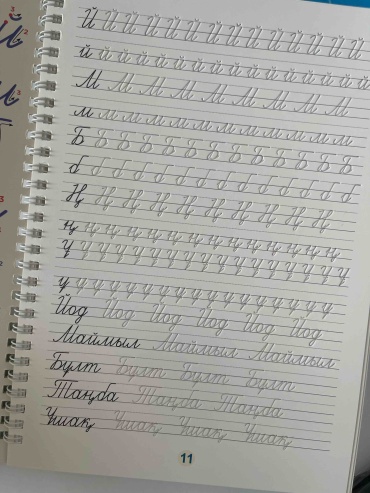 Й Й Й Й Й Й Й Й Й Й Й Й Й Й
й й й й й й й й й й й й й й й й й
М М М М М М М М М
м м м м м м м м м м м м м
Б Б Б Б Б Б Б Б Б Б Б Б Б
б б б б б б б б б б б б б
Ң Ң Ң Ң Ң Ң Ң Ң Ң Ң
ң ң ң ң ң ң ң ң ң ң ң ң ң ң
Ұ Ұ Ұ Ұ Ұ Ұ Ұ Ұ Ұ Ұ Ұ Ұ Ұ Ұ Ұ Ұ Ұ
ұ ұ ұ ұ ұ ұ ұ ұ ұ ұ ұ ұ ұ ұ ұ ұ ұ
Йод Йод Йод Йод Йод Йод
Маймыл Маймыл Маймыл
Бұлт Бұлт Бұлт Бұлт
Таңба Таңба Таңба
Ұшақ Ұшақ Ұшақ Ұшақ
11